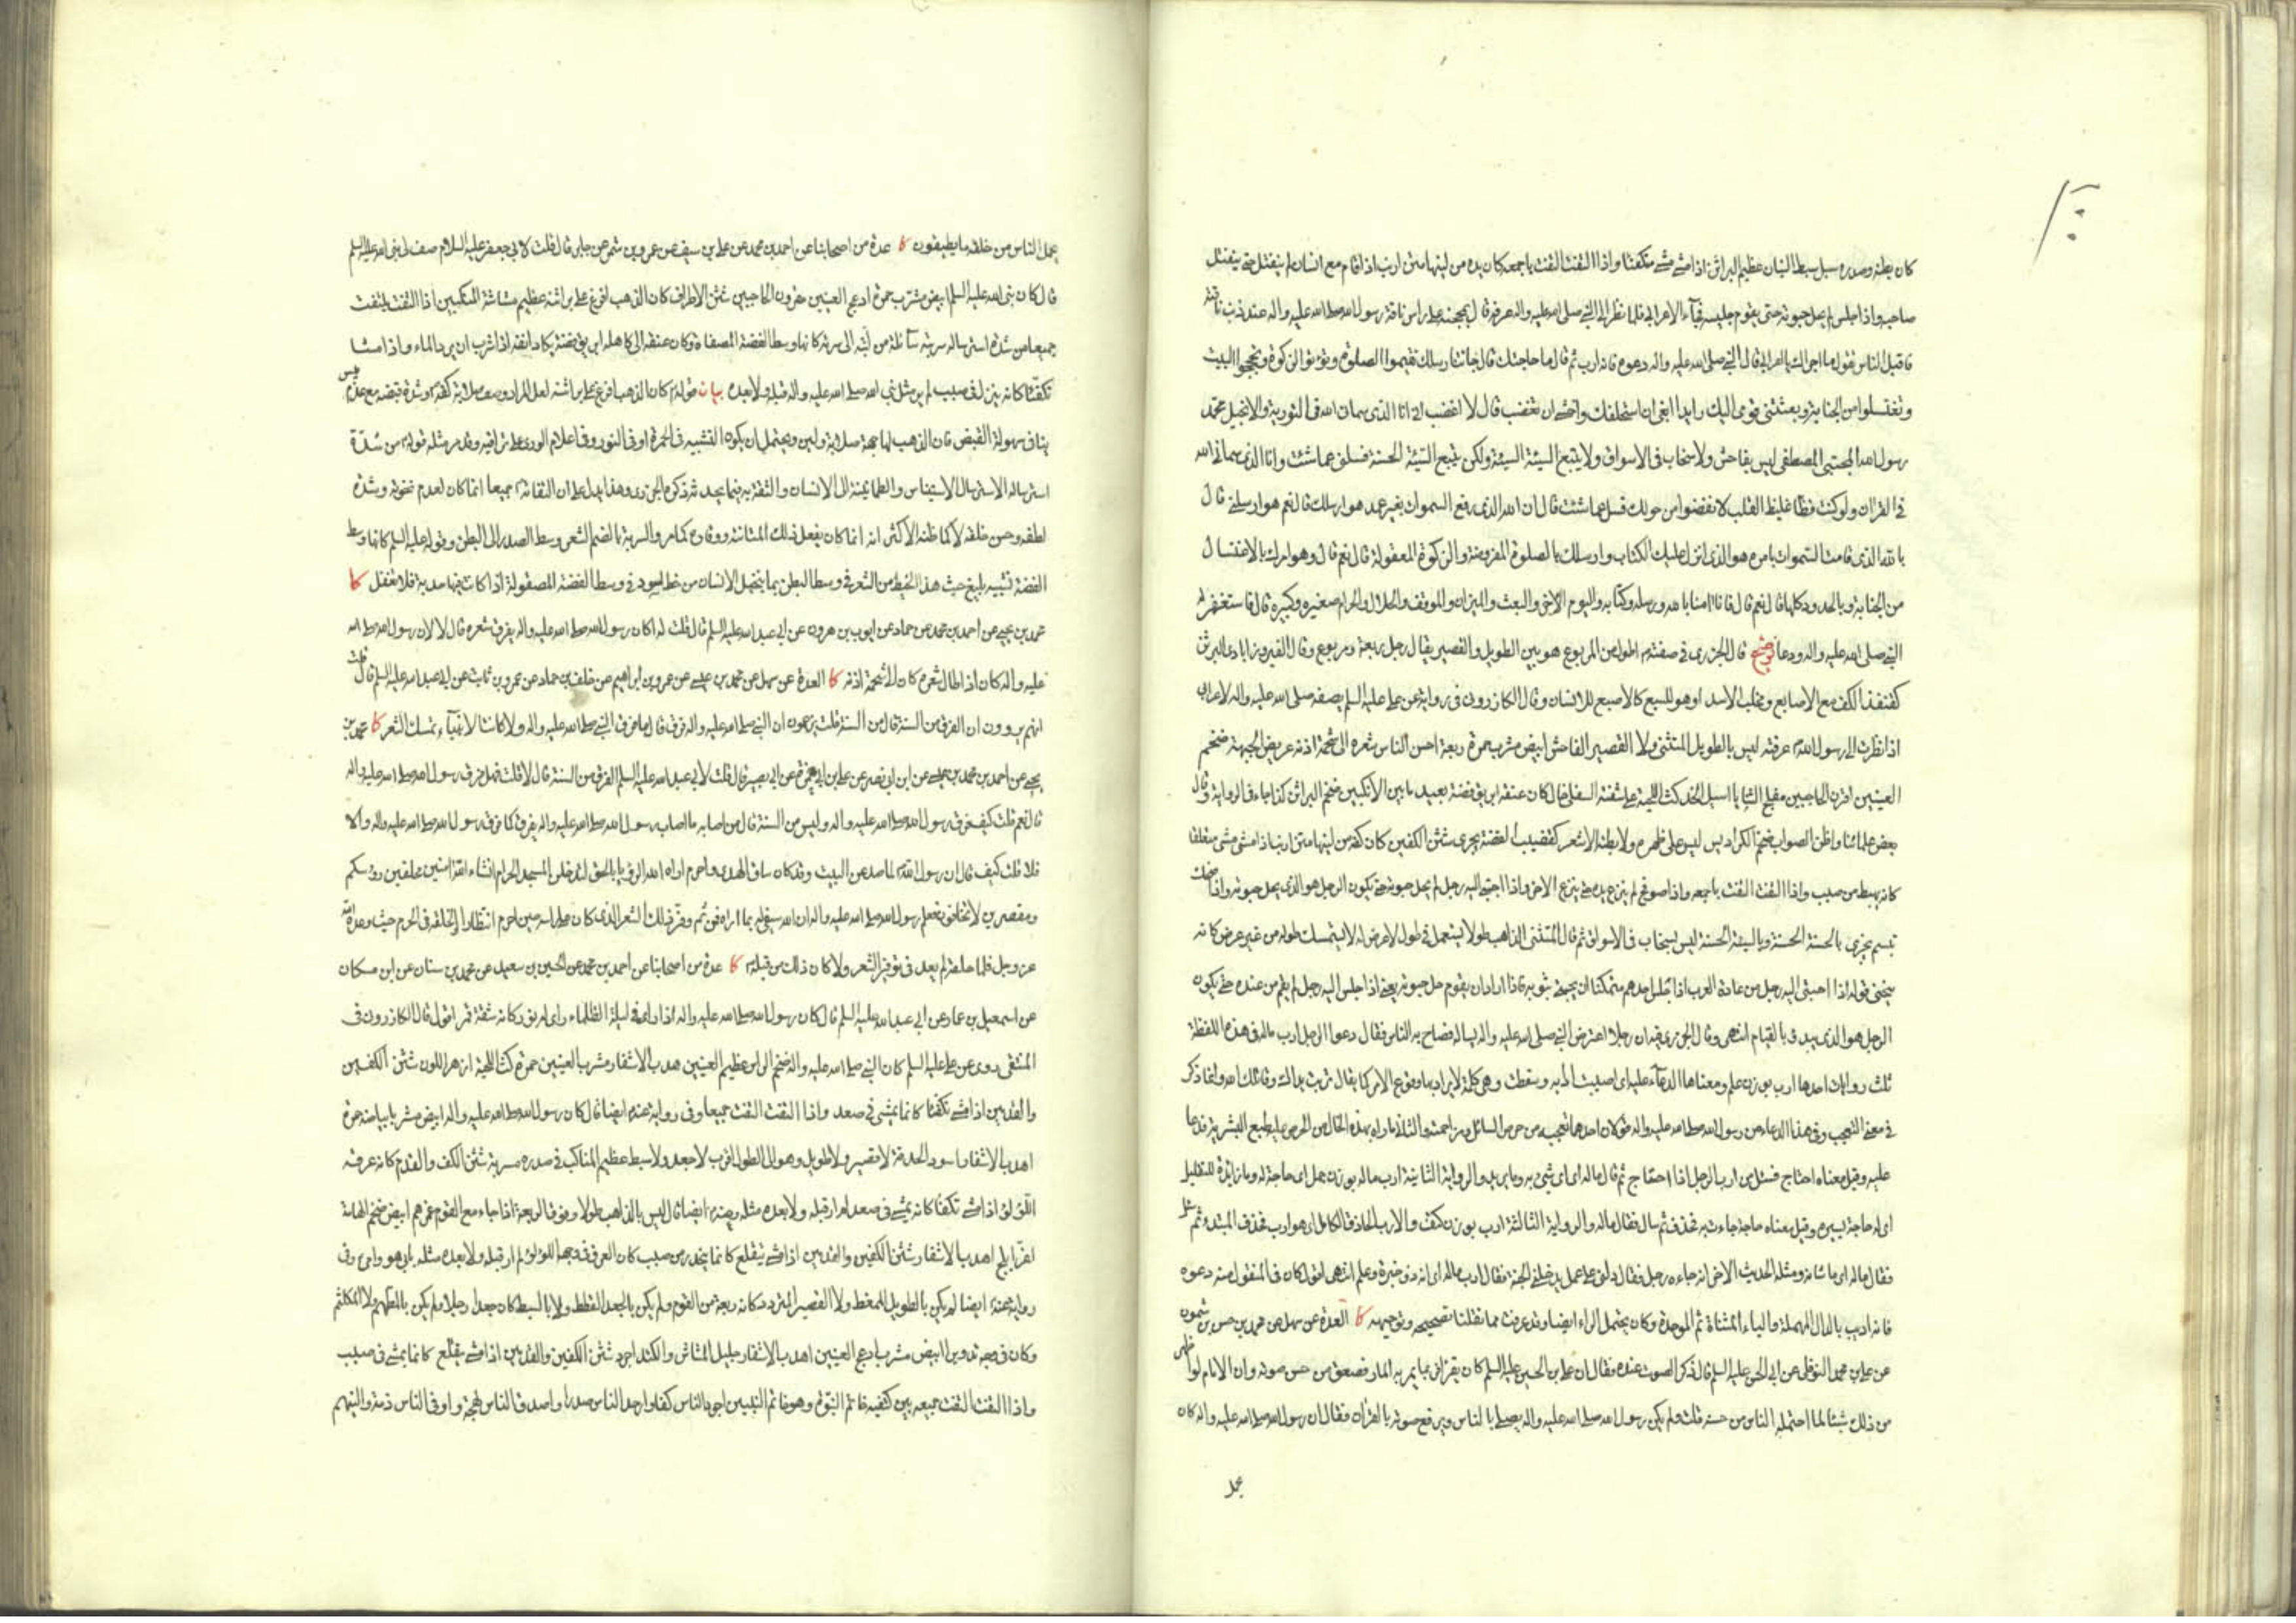 كان بطنه وصدره سبل سبط البنان عظيم البراثن اذا مشى مشى متكفئا واذا التفت التفت باجمعه كان يده من لينها متن ارنب اذا قام مع انسان لم ينفتل حتى ينفتل
صاحبه واذا جلس لم يحل حبوته حتى يقوم جليسه فجآء الاعرابي فلما نظر الى النبي صلى الله عليه واله عرفه قال بمحجنه على راس ناقة رسول الله صلى الله عليه واله عند ذنب ناقته
فاقبل الناس تقول ما اجراك يا اعرابي قال النبي صلى الله عليه واله دعوه فانه ارب ثم قال ما حاجتك قال جائتنا رسلك تقيموا الصلوة وتؤتوا الزكوة وتحجوا البيت
وتغتسلوا من الجنابة وبعثنى قومى اليك رايدا ابغى ان استحلفك واخشى ان تغضب قال لا اغضب انى انا الذى سمانى الله فى التورية والانجيل محمد
رسول الله المجتبى المصطفى ليس بفاحش ولا سخاب فى الاسواق ولا يتبع السيئة السيئة ولكن يتبع السيئة الحسنة فسلنى عما شئت وانا الذى سمانى الله
فى القران ولو كنت فظا غليظ القلب لانفضوا من حولك فسل عما شئت قال ان الله الذى رفع السموات بغير عمد هو ارسلك قال نعم هو ارسلنى قال
بالله الذى قامت السموات بامره هو الذى انزل عليك الكتاب وارسلك بالصلوة المفروضة والزكوة المعقولة قال نعم قال وهو امرك بالاغتسال
من الجنابة وبالحدود كلها قال نعم قال فانا امنا بالله ورسله وكتابه واليوم الاخر والبعث والميزان والموقف والحلال والحرام صغيره وكبيره قال فاستغفر له
النبي صلى الله عليه واله ودعا توضيح قال الجزرى فى صفته م اطول من المربوع هو بين الطويل والقصير يقال رجل ربعة ومربوع وقال الفيروزابادى البرثن
كقنفذ الكف مع الاصابع ومخلب الاسد او هو للسبع كالاصبع للانسان وقال الكازرونى فى رواية عن على عليه السلم يصفه صلى الله عليه واله لاعرابى
اذا نظرت الى رسول الله عرفته ليس بالطويل المتثنى ولا القصير الفاحش ابيض مشرب حمرة ربعة احسن الناس شعره الى شحمة اذنه عريض الجبهة ضخم
العينين اقرن الحاجبين مفلج الثنايا اسيل الخد كث اللحية على شفته السفلى خال كان عنقه ابريق فضة بعيد ما بين الانكبين ضخم البراثن كذا جاء فى الرواية وقال
بعض علمائنا واظن الصواب ضخم الكراديس ليس على ظهره ولا بطنه الا شعر كقضيب الفضة يجرى شثن الكفين كان كفه من لينها متن ارنب اذا مشى مشى متقلعا
كانه يهبط من صبب واذا التفت التفت باجمعه واذا صوفح لم ينزع يده حتى ينزع الاخر واذا احتبى اليه رجل لم يحل حبوته حتى يكون الرجل هو الذى يحل حبوته واذا ضحك
تبسم يجزى بالحسنة الحسنة وبالسيئة الحسنة ليس بسخاب فى الاسواق ثم قال المتثنى الذاهب طولا يستعمل فى طول لا عرض له لا يستمسك طوله من غير عرض كانه
ينحنى قوله اذا احتبى اليه رجل من عادة العرب اذا جلس احدهم متمكنا ان يحتبى بثوبه فاذا اراد ان يقوم حل حبوته يعنى اذا جلس اليه رجل لم يقم من عنده حتى يكون
الرجل هو الذى يبدء بالقيام انتهى وقال الجزرى فيه ان رجلا اعترض النبي صلى الله عليه واله يساله فصاح به الناس فقال دعوا الرجل ارب ماله فى هذه اللفظة
ثلث روايات احدها ارب بوزن علم ومعناها الدعآء عليه اى اصيبت ارابه وسقطت وهى كلمة لا يراد بها وقوع الامر كما يقال تربت يداك وقاتلك الله وانما تذكر
فى معنى التعجب وفى هذا الدعاء من رسول الله صلى الله عليه واله قولان احدهما تعجبه من حرص السائل ومزاحمته والثانى لما راه بهذه الحال من الحرص غلبه طبع البشرية فدعا
عليه وقيل معناه احتاج فسئل من ارب الرجل اذا احتاج ثم قال ماله اى اى شيئ به وما يريد والرواية الثانية ارب ماله بوزن جمل اى حاجة له وما زائدة للتقليل
اى له حاجة يسيرة وقيل معناه حاجة جاءت به فحذف ثم سال فقال ماله والرواية الثالثة ارب بوزن كتف والارب الحاذق الكامل اى هو ارب فحذف المبتدء ثم سئل
فقال ماله اى ما شانه ومثله الحديث الاخر انه جاءه رجل فقال دلنى على عمل يدخلنى الجنة فقال ارب ماله اى انه ذو خبرة وعلم انتهى اقول كان فى المنقول منه دعوه
فانه اديب بالدال المهملة والياء المثناة ثم الموحدة وكان يحتمل الراء ايضا وقد عرفت مما نقلنا تصحيحه وتوجيهه كا العدة عن سهل عن محمد بن حسن بن شمون
عن على بن محمد النوفلى عن ابى الحسن عليه السلم قال ذكر الصوت عنده فقال ان على بن الحسين عليه السلم كان يقرا فربما يمر به المار فصعق من حسن صوته وان الامام لو اظهر
من ذلك شيئا لما احتمله الناس من حسنه قلت ولم يكن رسول الله صلى الله عليه واله يصلى بالناس ويرفع صوته بالقران فقال ان رسول الله صلى الله عليه واله كان
يحمل
يحمل الناس من خلفه ما يطيقون كا عدة من اصحابنا عن احمد بن محمد عن على بن سيف عن عمرو بن شمر عن جابر قال قلت لابى جعفر عليه السلام صف لى نبى الله عليه السلم
قال كان نبى الله عليه السلم ابيض مشرب حمرة ادعج العينين مقرون الحاجبين شثن الاطراف كان الذهب افرغ على براثنه عظيم مشاشة المنكبين اذا التفت يلتفت
جميعا من شدة استرساله سربته سائلة من لبته الى سرته كانها وسط الفضة المصفاة وكان عنقه الى كاهله ابريق فضة يكاد انفه اذا شرب ان يرد الماء واذا مشا
تكفأ كانه ينزل فى صبب لم ير مثل نبى الله صلى الله عليه واله قبله ولا بعده بيان قوله كان الذهب افرغ على براثنه لعل المراد وصف صلابة كفه وشدة قبضه مع عدم يبس
ينافى سهولة القبض فان الذهب لها جهة صلابة ولين ويحتمل ان يكون التشبيه فى الحمرة او فى النور وفى اعلام الورى على تراقيه وقد مر مثله قوله من شدة
استرساله الاسترسال الاستيناس والطمانينة الى الانسان والثقة به فيما يحدثه ذكره الجزرى وهذا يدل على ان التفاته جميعا انما كان لعدم نخوته وشدة
لطفه وحسن خلقه لا كما ظنه الاكثر انه انما كان يفعل ذلك لمتانته ووقاره كما مر والسربة بالضم الشعر وسط الصدر الى البطن وقوله عليه السلم كانها وسط
الفضة تشبيه بليغ حيث هذا الخيط من الشعر فى وسط البطن بما يتخيل الانسان من خط اسود فى وسط الفضة المصقولة اذا كانت فيها حدبة فلا تغفل كا
محمد بن يحيى عن احمد بن محمد عن حماد عن ايوب بن هرون عن ابى عبد الله عليه السلم قال قلت له اكان رسول الله صلى الله عليه واله يفرق شعره قال لا لان رسول الله صلى الله
عليه واله كان اذا طال شعره كان الى شحمة اذنه كا العدة عن سهل عن محمد بن عيسى عن عمرو بن ابراهيم عن خلف بن حماد عن عمرو بن ثابت عن ابى عبد الله عليه السلم قال قلت
انهم يروون ان الفرق من السنة قال من السنة قلت يزعمون ان النبي صلى الله عليه واله فرق قال ما فرق النبي صلى الله عليه واله ولا كانت الانبيآء تمسك الشعر كا محمد بن
يحيى عن احمد بن محمد بن عيسى عن ابن ابى نصر عن على بن ابى حمزة عن ابى بصير قال قلت لابى عبد الله عليه السلم الفرق من السنة قال لا قلت فهل فرق رسول الله صلى الله عليه واله
قال نعم قلت كيف فرق رسول الله صلى الله عليه واله وليس من السنة قال من اصابه ما اصاب رسول الله صلى الله عليه واله يفرق كما فرق رسول الله صلى الله عليه واله والا
فلا قلت كيف قال ان رسول الله لما صد عن البيت وقد كان ساق الهدى واحرم اراه الله الرؤيا بالحق لتدخلن المسجد الحرام انشاء الله امنين محلقين رؤسكم
ومقصرين لا تخافون فعلم رسول الله صلى الله عليه واله ان الله سيفى له بما اراه فمن ثم وفر ذلك الشعر الذى كان على راسه حين احرم انتظارا لحلقه فى الحرم حيث وعده الله
عز وجل فلما حلقه لم يعد فى توفير الشعر ولا كان ذلك من قبله كا عدة من اصحابنا عن احمد بن محمد عن الحسين بن سعيد عن محمد بن سنان عن ابن مسكان
عن اسمعيل بن عمار عن ابى عبد الله عليه السلم قال كان رسول الله صلى الله عليه واله اذا راى فى الليلة الظلماء راى له نور كانه شقة قمر اقول قال الكازرونى فى
المنتقى روى عن على عليه السلم كان النبي صلى الله عليه واله ضخم الراس عظيم العينين هدب الاشفار مشرب العينين حمرة كث اللحية ازهر اللون شثن الكفين
والقدمين اذا مشى تكفأ كانما يمشى فى صعد واذا التفت التفت جميعا وفى رواية عنه ايضا قال كان رسول الله صلى الله عليه واله ابيض مشربا بياضه حمرة
اهدب الاشفار اسود الحدقة لا قصير ولا طويل وهو الى الطول اقرب لا جعد ولا سبط عظيم المناكب فى صدره مسربة شثن الكف والقدم كان عرقه
اللؤلؤ اذا مشى تكفأ كانه يمشى فى صعد لم ار قبله ولا بعده مثله وعنه ايضا قال ليس بالذاهب طولا وفوق الربعة اذا جاء مع القوم غمرهم ابيض ضخم الهامة
اغر ابلج اهدب الاشفار شثن الكفين والقدمين اذا مشى يتقلع كانما ينحدر من صبب كان العرق فى وجهه اللؤلؤ لم ار قبله ولا بعده مثله بابى هو وامى وفى
رواية عنه ايضا لم يكن بالطويل الممغط ولا القصير المتردد كانه ربعة من القوم ولم يكن بالجعد القطط ولا بالسبط كان جعدا رجلا ولم يكن بالمطهم ولا المكلثم
وكان فى وجهه تدوير ابيض مشرب ادعج العينين اهدب الاشفار جليل المشاش والكتد اجرد شثن الكفين والقدمين اذا مشى يتقلع كانما يمشى فى صبب
واذا التفت التفت جميعه بين كتفيه خاتم النبوة وهو خاتم النبيين اجود الناس كفا وارحب الناس صدرا واصدق الناس لهجة واوفى الناس ذمة والينهم